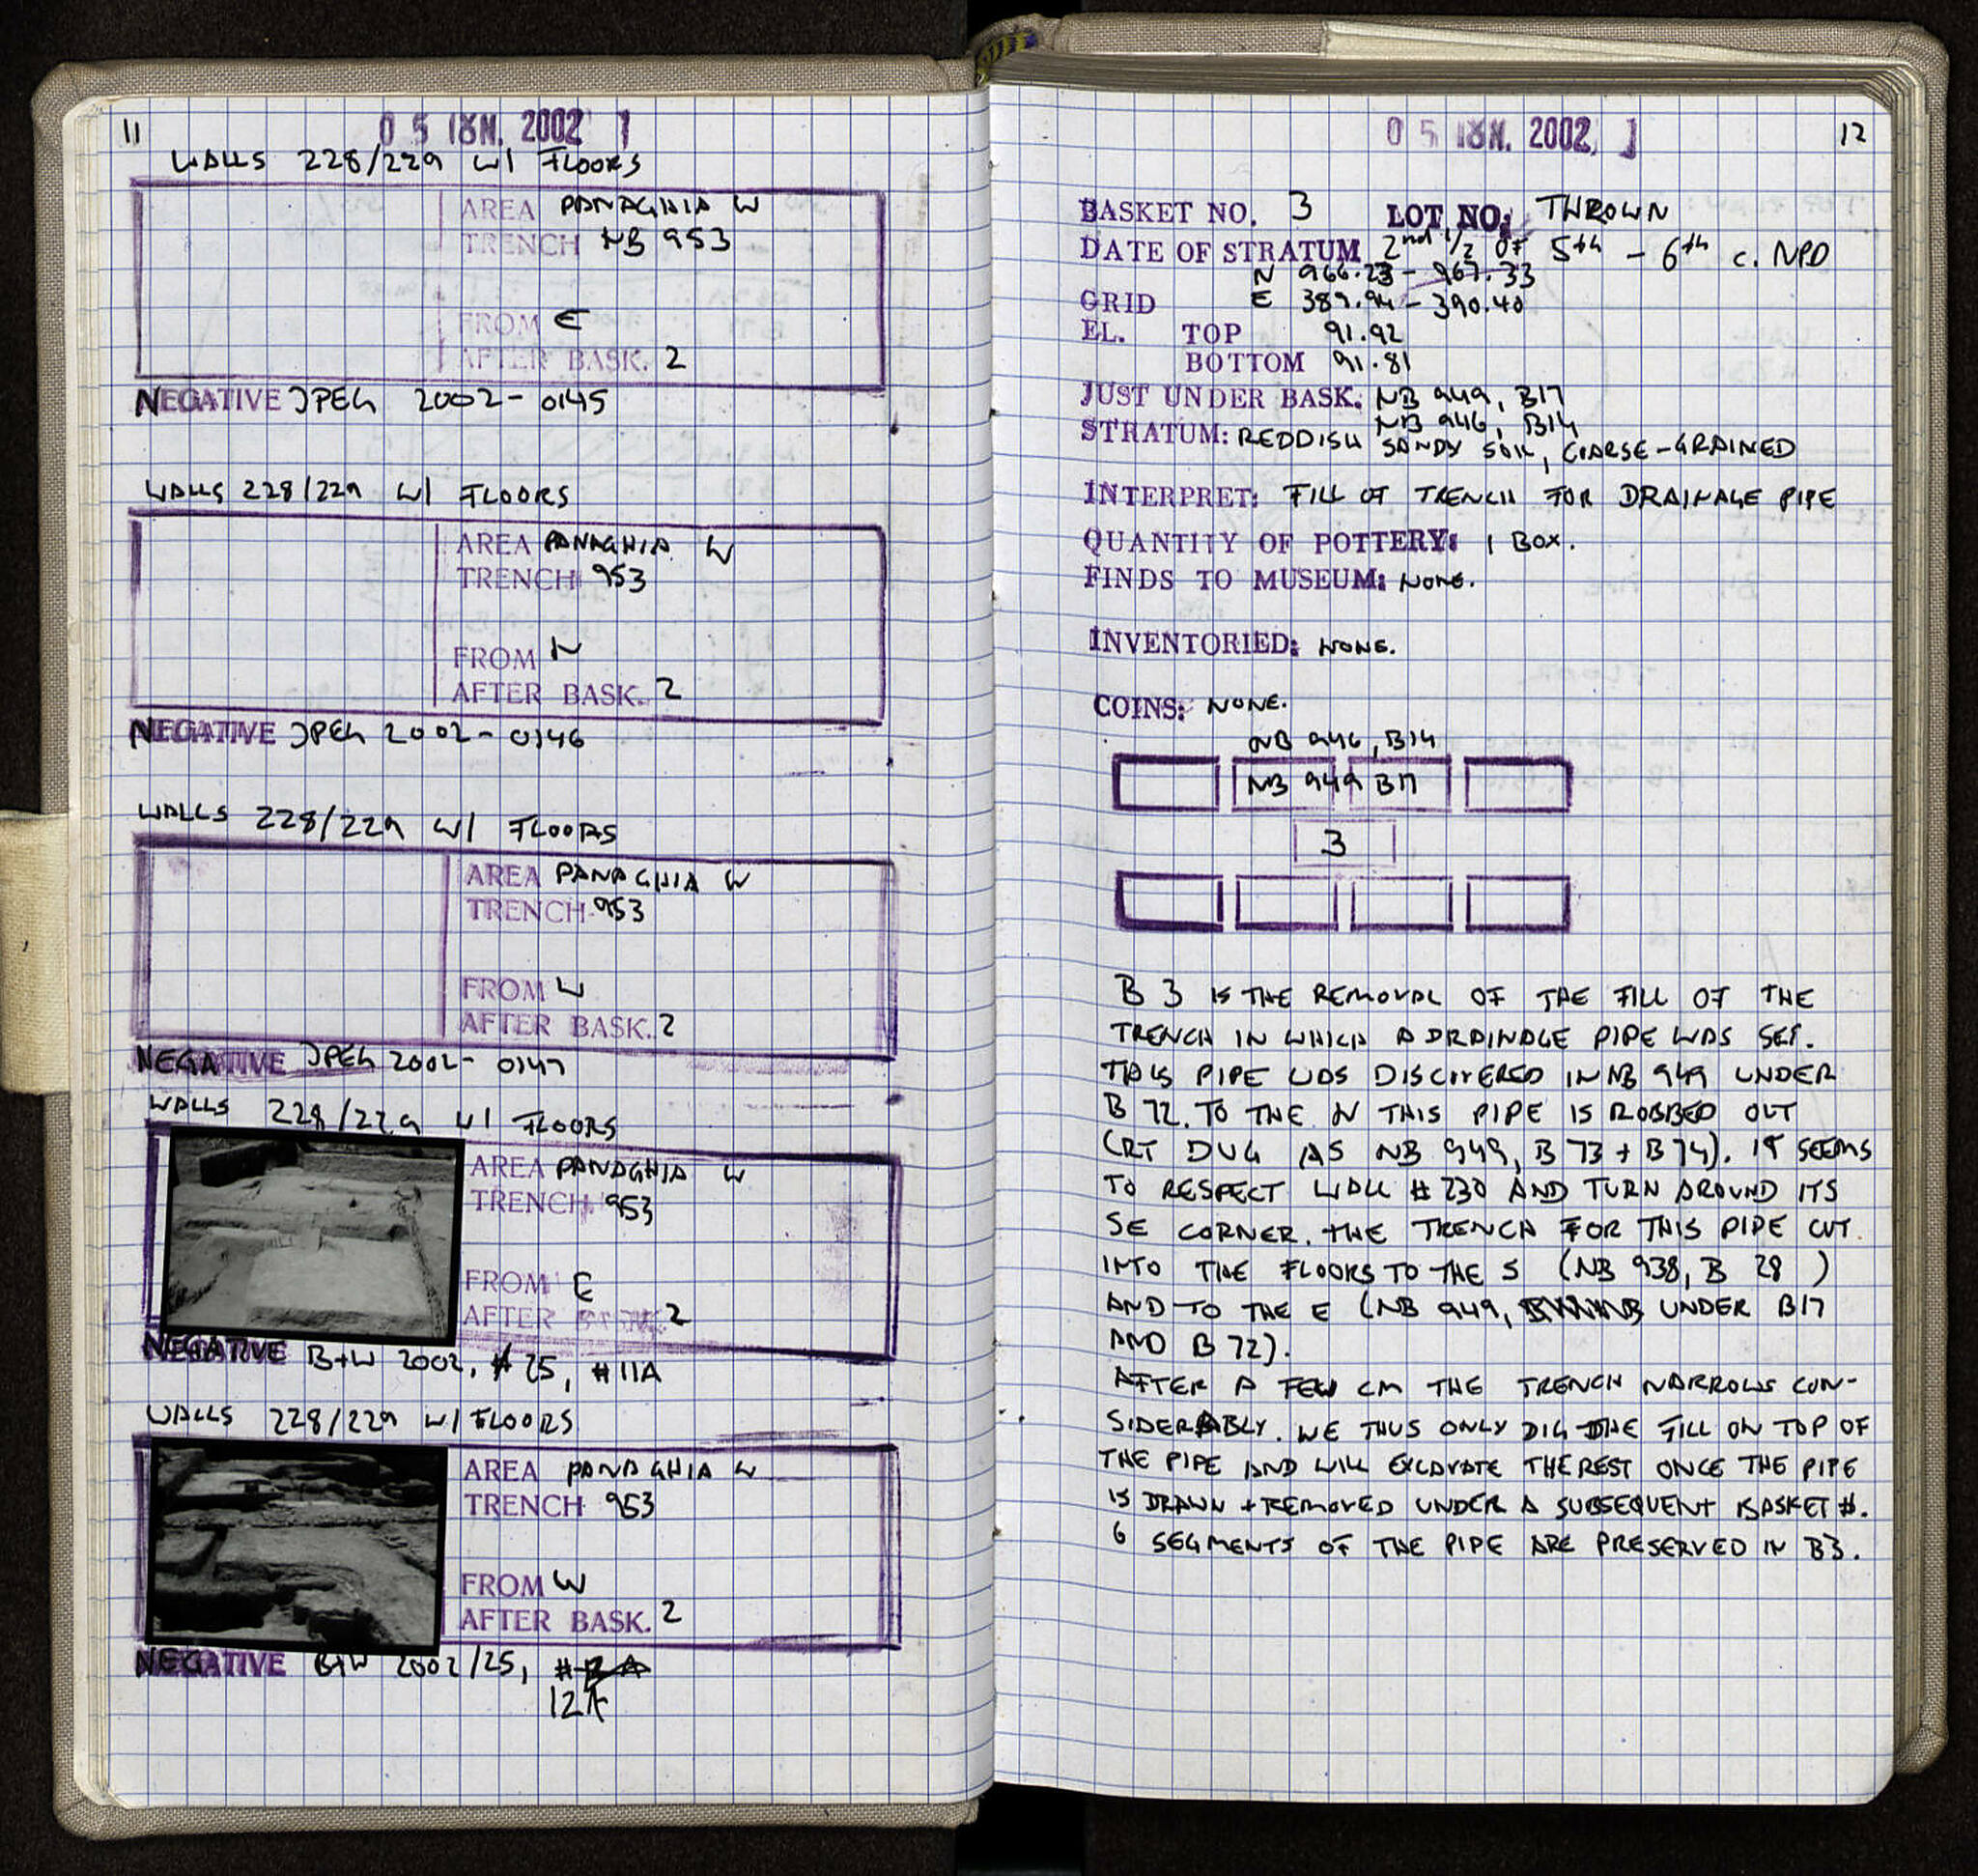 11
05 ΙΟΥΝ. 2002
WALLS 228/229 W/ FLOORS
AREA PANAGHIA W
TRENCH NB 953
FROM E
AFTER BASK. 2
NEGATIVE JPEG 2002-0145
WALLS 228/229 W/ FLOORS
AREA PANAGHIA W
TRENCH 953
FROM N
AFTER BASK. 2
NEGATIVE JPEG 2002-0146
WALLS 228/229 W/ FLOORS
AREA PANAGHIA W
TRENCH 953
FROM W
AFTER BASK. 2
NEGATIVE JPEG 2002-0147
WALLS 228/229 W/ FLOORS
AREA PANAGHIA W
TRENCH 953
FROM E
AFTER BASK. 2
NEGATIVE B+W 2002, #25, #11A
WALLS 228/229 W/ FLOORS
AREA PANAGHIA W
TRENCH 953
FROM W
AFTER BASK. 2
NEGATIVE B+W 2002/25, #
12A
05 ΙΟΥΝ. 2002
12
BASKET NO. 3 LOT NO: THROWN
DATE OF STRATUM 2nd 1/2 OF 5th - 6th C. NPD
N 966.23 - 967.33
GRID E 389.94 - 390.40
EL. TOP 91.92
BOTTOM 91.81
JUST UNDER BASK. NB 949, B17
NB 946, B14
STRATUM: REDDISH SANDY SOIL, COARSE-GRAINED
INTERPRET: FILL OF TRENCH FOR DRAINAGE PIPE
QUANTITY OF POTTERY: 1 BOX.
FINDS TO MUSEUM: NONE.
INVENTORIED: NONE.
COINS: NONE.
NB 946, B14
NB 949 B17
3
B 3 IS THE REMOVAL OF THE FILL OF THE
TRENCH IN WHICH A DRAINAGE PIPE WAS SET.
THIS PIPE WAS DISCOVERED IN NB 949 UNDER
B 72. TO THE N THIS PIPE IS ROBBED OUT
(RT DUG AS NB 949, B 73 + B 74). IT SEEMS
TO RESPECT WALL #230 AND TURN AROUND ITS
SE CORNER. THE TRENCH FOR THIS PIPE CUT
INTO THE FLOORS TO THE S (NB 938, B 28)
AND TO THE E (NB 949, UNDER B17
AND B 72).
AFTER A FEW CM THE TRENCH NARROWS CON-
SIDERABLY. WE THUS ONLY DIG THE FILL ON TOP OF
THE PIPE AND WILL EXCAVATE THE REST ONCE THE PIPE
IS DRAWN + REMOVED UNDER A SUBSEQUENT BASKET #.
6 SEGMENTS OF THE PIPE ARE PRESERVED IN B3.